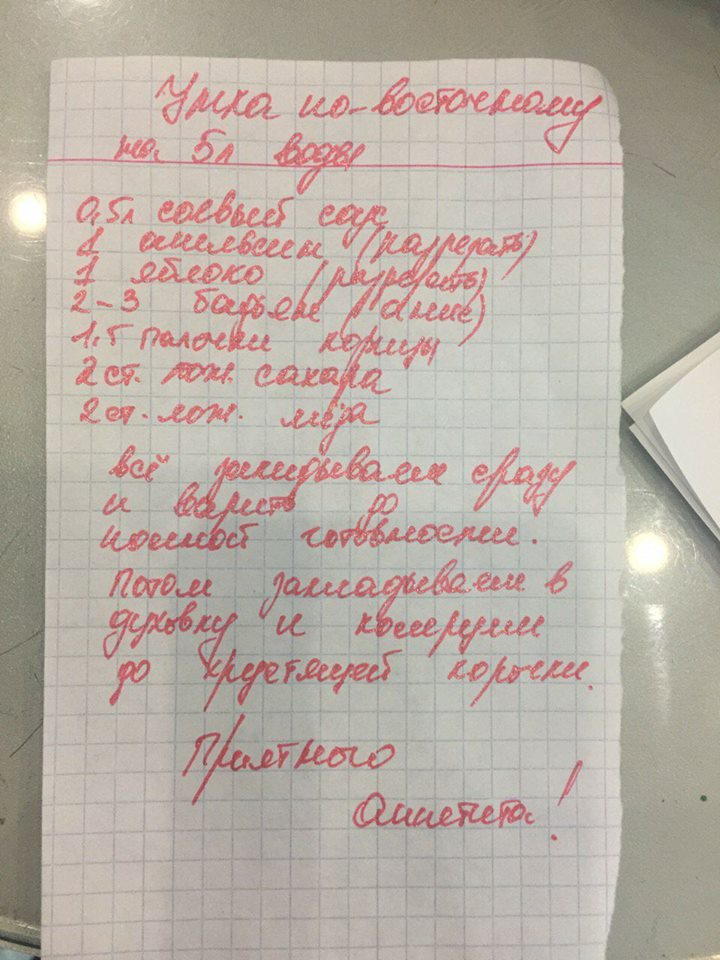 Утка по-восточному
на 5л воды
0,5л соевый соус
1 апельсин (разрезать)
1 яблоко (разрезать)
2-3 бадьян (анис)
1,5 палочки корицы
2 ст. лож. сахара
2 ст. лож. мёда
всё закидываем сразу
и варить до
полной готовности.
Потом закладываем в
духовку и колеруем
до хрустящей корочки.
Приятного
Аппетита!